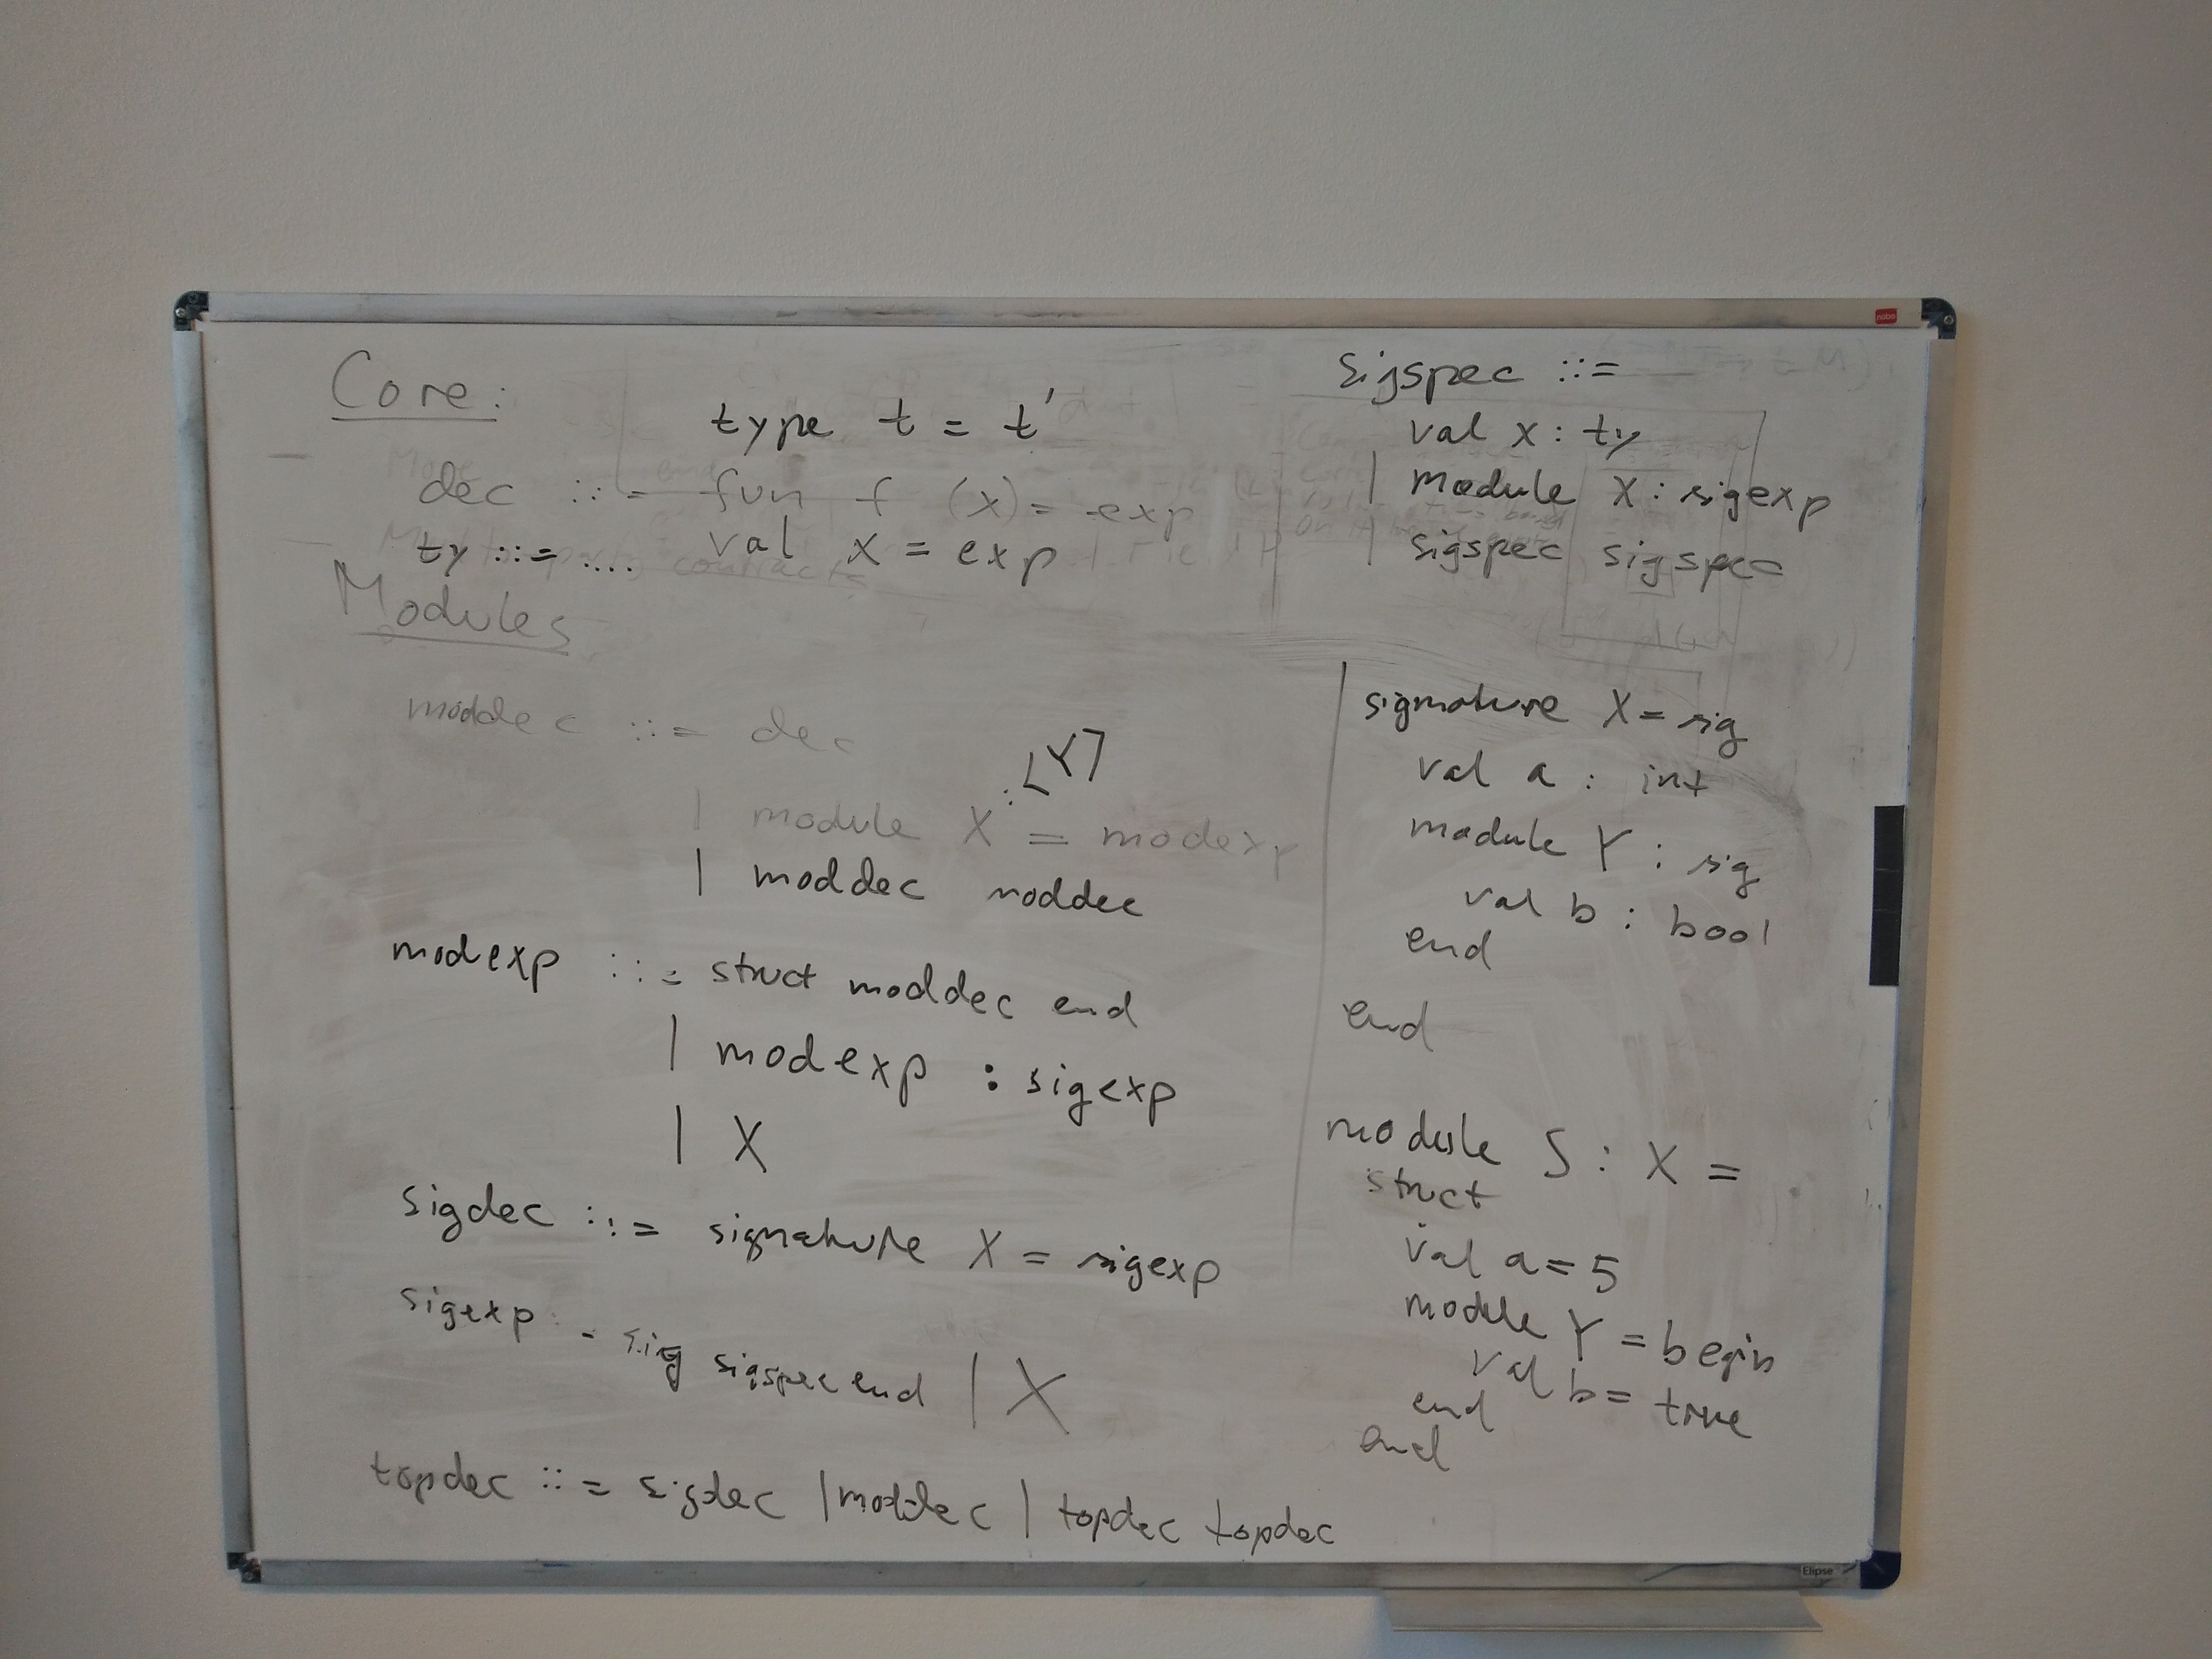 Core:
type t = t'
dec ::= fun f (x) = exp
ty ::= .... val x = exp
Modules
moddec ::= dec
| module X :[Y] = modexp
| moddec moddec
modexp ::= struct moddec end
| modexp : sigexp
| X
sigdec ::= signature X = sigexp
sigexp = sig sigspec end | X
topdec ::= sigdec | moddec | topdec topdec
Sigspec ::=
val x : ty
| module X : sigexp
| sigspec sigspec
signature X = sig
val a : int
module Y : sig
val b : bool
end
end
module S : X =
struct
val a = 5
module Y = begin
val b = true
end
end
nobo
Elipse